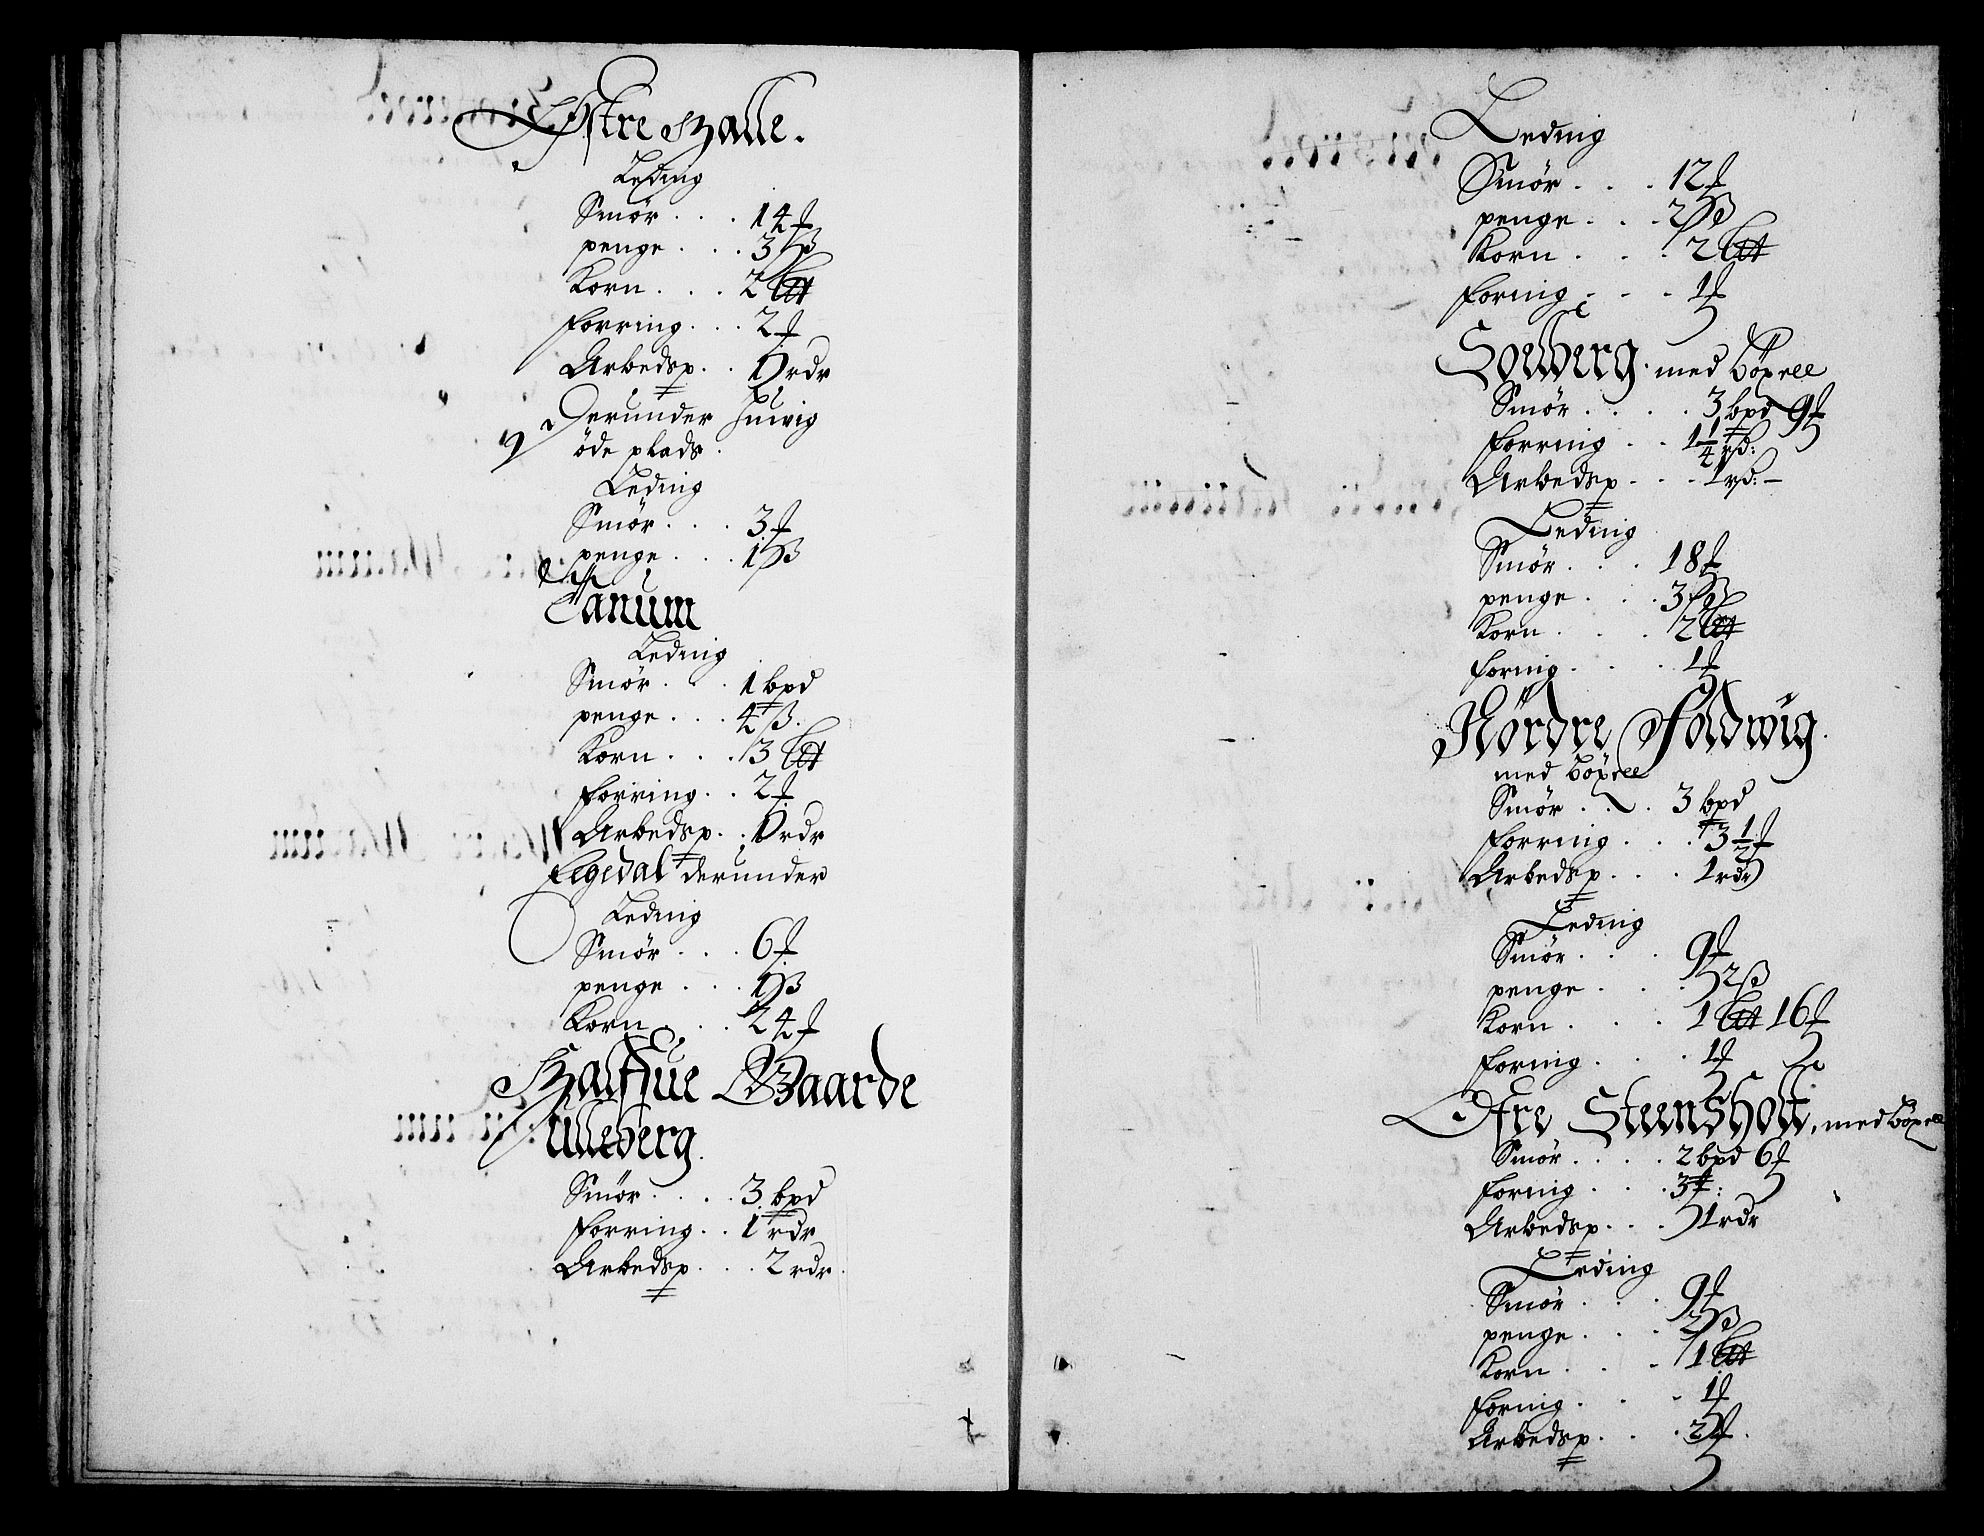 Østre Halle.
Leding
Smör . . . 14 ℔
penge . . . 3 ß
Korn . . . 2 Ltt
forring . . . 2 ℔
Arbedsp. . . 1 rdr
Derunder
öde plads.
Leding
Smör . . . 3 ℔
penge . . . 1 ß
Tanum
Leding
Smör . . . 1 bpd
penge . . . 4 ß.
Korn . . . 3 Ltt
forring . . 2 ℔
Arbedsp. . . 1 rdr
Eigedal derunder
Leding
Smör . . . 6 ℔
penge . . . 1 ß
Korn . . . 24 ℔
Halfue Gaarde
Ulleberg.
Smör . . . . 3 bpd
forring . . 1 rdr
Arbedsp. . . . 2 rdr.
Leding
Smör . . . 12 ℔
penge . . . 2 ß
Korn . . . 2 Ltt
foring . . . 1 ℔
Solberg med böxell
Smör . . . . 3 bpd 9 ℔
forring . . 1 1/4 rd:
Arbedsp . . . 1 rd:
Leding
Smör . . . 18 ℔
penge . . . 3 ß
Korn . . . 2 Ltt
foring . . . 1 ℔
Nördre Foldwig.
med böxell
Smör . . . 3 bpd
forring . . . . 3 1/2 ℔
Arbedsp. . . . 1 rdr
Leding
Smör . . . 9 ℔
penge . . . 2 ß
Korn . . . 1 Ltt 16 ℔
foring . . . . 1 ℔
Öfre Steensholt, med böxell
Smör . . . . 2 bpd 6 ℔
foring . . . . 3 ℔:
Arbedsp. . . . 1 rdr
Leding
Smör . . . 9 ℔
penge . . . 2 ß
Korn . . . . 1 Ltt
foring . . . 1 ℔
Arbedsp. . . . 2 ℔.